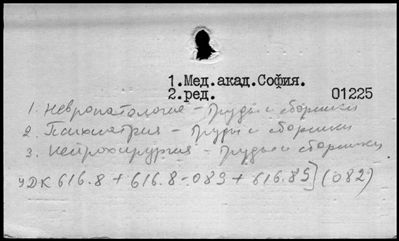 1.Мед.акад.София.
2.ред. 01225
1. Невропатология - Труды и сборники
2. Психиатрия - Труды и сборники
3. Нейрохирургия - Труды и сборники
УДК 616.8 + 616.8-089 + 616.89](082)